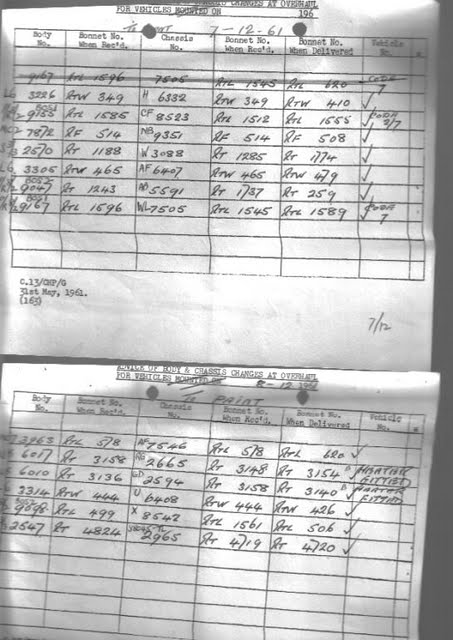 CHANGES AT OVERHAUL
FOR VEHICLES MOUNTED ON 196
7-12-61
Body No. Bonnet No. When Rec'd. Chassis No. Bonnet No. When Rec'd. Bonnet No. When Delivered Vehicle No.
9167 RTL 1596 7505 RTL 1545 RTL 620 7
L6 3226 RTW 349 H 6332 RTW 349 RTW 410 ✓
9155 RTL 1585 CF 8523 RTL 1512 RTL 1555 ✓ 3/7
7872 RF 514 NB 9351 RF 514 RF 508 ✓
2570 RT 1188 W 3088 RT 1285 RT 1774 ✓
L6 3305 RTW 465 AF 6407 RTW 465 RTW 479 ✓
9047 RT 1243 AD 5591 RT 1737 RT 259 ✓
9167 RTL 1596 WL 7505 RTL 1545 RTL 1589 ✓ 7
C.13/GMP/G
31st May, 1961.
(163)
7/12
ADVICE OF BODY & CHASSIS CHANGES AT OVERHAUL
FOR VEHICLES MOUNTED ON 8-12-1961
To PAINT
Body No. Bonnet No. When Rec'd. Chassis No. Bonnet No. When Rec'd. Bonnet No. When Delivered Vehicle No.
2963 RTL 518 AF 7546 RTL 518 RTL 620 ✓
6017 RT 3158 2665 RT 3148 RT 3154 ✓ HEATER FITTED
6010 RT 3136 2594 RT 3158 RT 3140 ✓ HEATER FITTED
3314 RTW 444 U 6408 RTW 444 RTW 426 ✓
9098 RTL 499 X 8542 RTL 1561 RTL 506 ✓
2547 RT 4824 2965 RT 4719 RT 4720 ✓